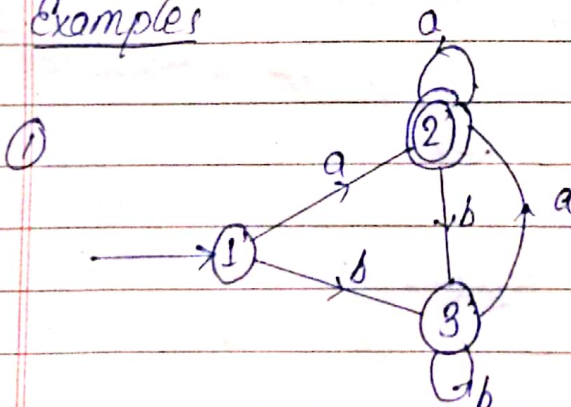 Examples
①
a
2
a
b
a
1
b
3
b